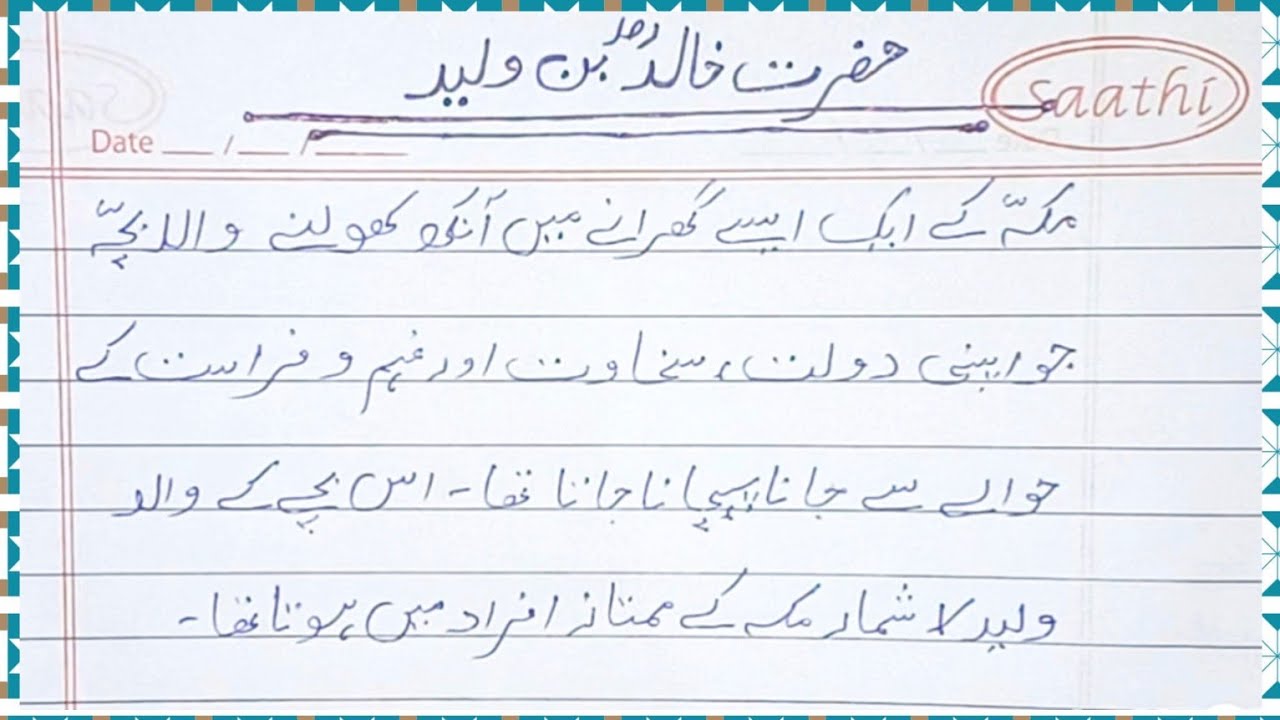 حضرت خالدؓ بن ولید
saathi
Date __ / __ / ____
مکّہ کے ایک ایسے گھرانے میں آنکھ کھولنے والا بچّہ
جو اپنی دولت، سخاوت اور فہم و فراست کے
حوالے سے جانا پہچانا جاتا تھا۔ اس بچے کے والد
ولید کا شمار مکہ کے ممتاز افراد میں ہوتا تھا۔